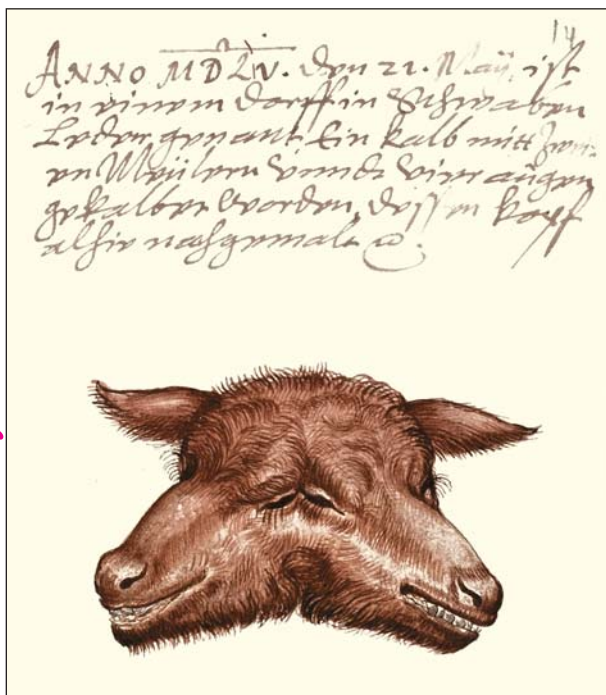 14
ANNO MDLV. den 21. Maÿ, ist
in einem dorff in Schwaben
Leder genant Ein kalb mitt Zwei-
en Meülern Vnndt Vier augen
gekalbet worden, dessen kopf
alhie nachgemalt